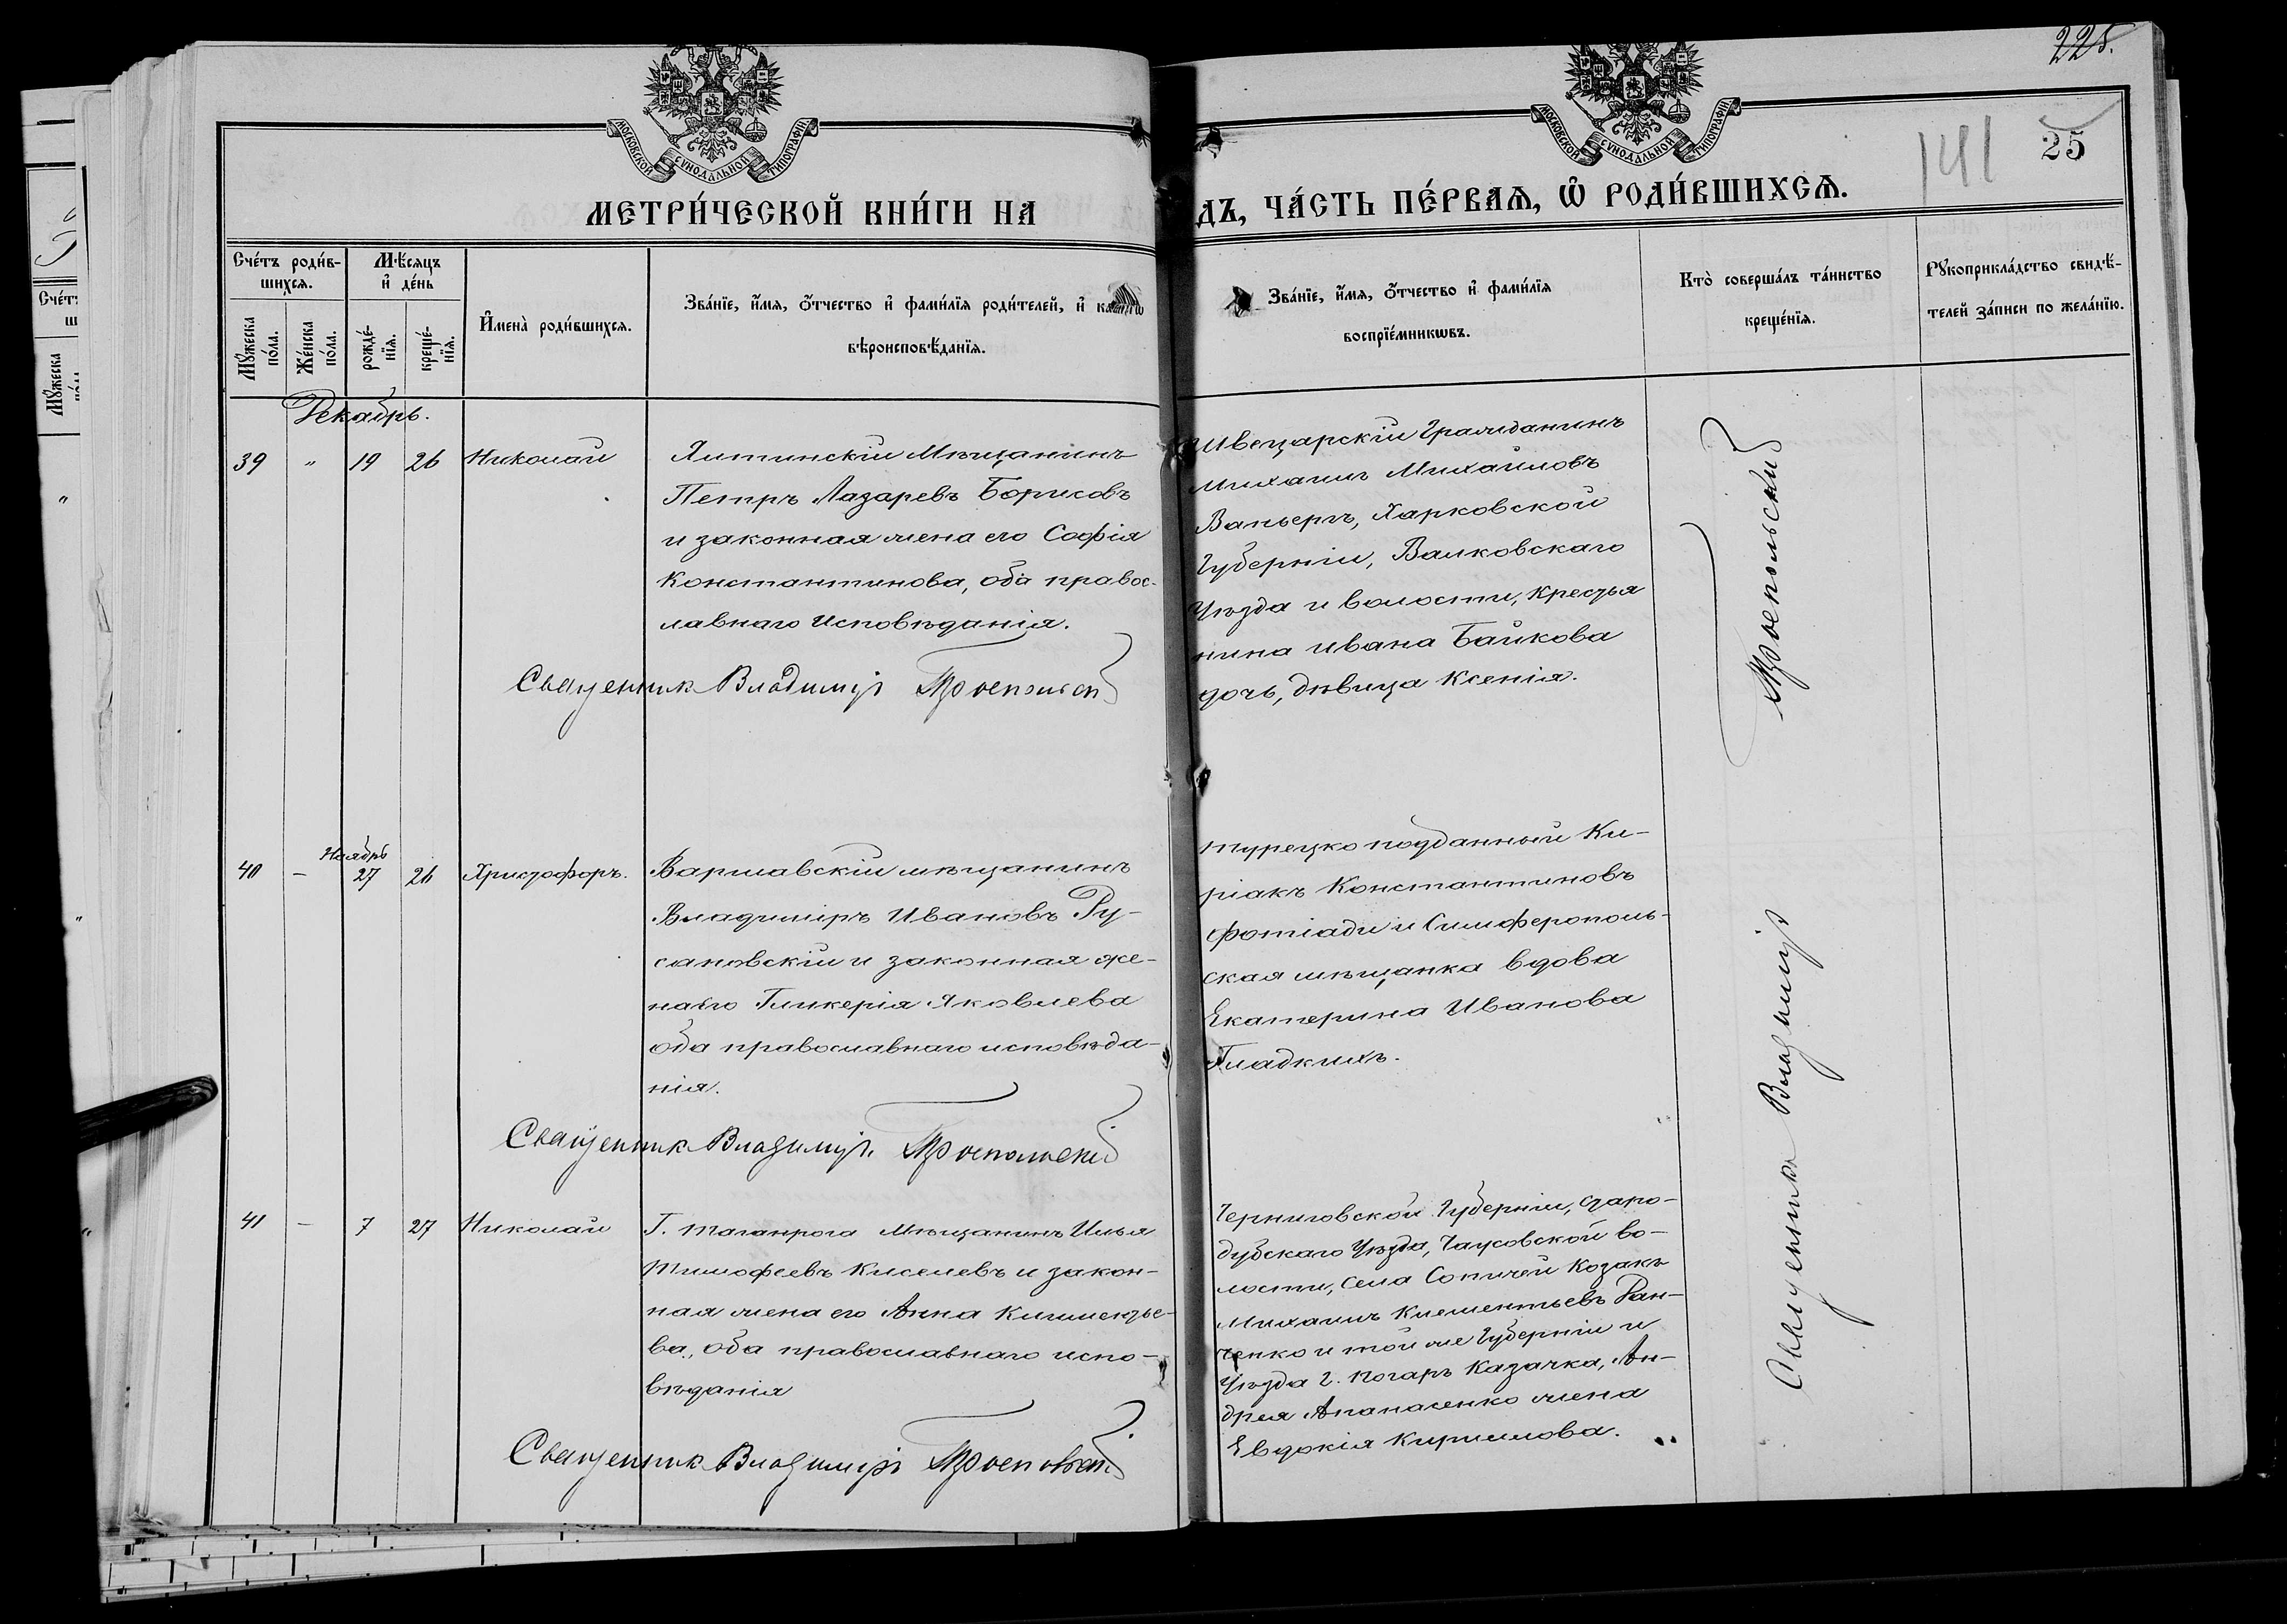 225.
141
25
МОСКОВСКОЙ СѴНОДАЛЬНОЙ ТИПОГРАФІИ.
МОСКОВСКОЙ СѴНОДАЛЬНОЙ ТИПОГРАФІИ.
МЕТРИ́ЧЕСКОЙ КНИ́ГИ НА
ДЪ, ЧА́СТЬ ПЕ́РВАѦ, Ѽ РОДИ́ВШИХСѦ.
Сче́тъ роди́в-
шихсѧ.
Мꙋ́жеска по́ла.
Же́нска по́ла.
Мѣ́сѧцъ
и҆ де́нь
рожде́-
нїѧ.
креще́-
нїѧ.
И҆мена̀ роди́вшихсѧ.
Зва́нїе, и҆́мѧ, ѻ҆́тчество и҆ фами́лїѧ роди́телей, и҆
вѣроисповѣ́данїѧ.
Зва́нїе, и҆́мѧ, ѻ҆́тчество и҆ фами́лїѧ
воспрїе́мникѡвъ.
Кто̀ соверша́лъ та́инство
креще́нїѧ.
Рꙋкоприкла́дство свидѣ́-
телей за́писи по жела́нїю.
Декабрь.
39 " 19 26 Николай
Ялтинскій Мѣщанинъ
Петръ Лазаревъ Борисовъ
и законная жена его Софія
Константинова, оба правос-
лавнаго Исповѣданія.
Священник Владимір Троепольскій
Швецарскій Гражданинъ
Михаилъ Михайловъ
Ваньергъ, Харковской
Губерніи, Валковскаго
Уѣзда и волости, крестья
нина Ивана Байкова
дочь, дѣвица Ксенія.
40 — Ноябрь 27 26 Христофоръ.
Варшавскій мѣщанинъ
Владиміръ Ивановъ Ру-
сановскій и законная же-
на его Гликерія Яковлева
оба православнаго исповѣда-
нія.
Священник Владимір Троепольскій
турецко подданный Ки-
ріакъ Константиновъ
Фотіади и Симферополь-
ская мѣщанка вдова
Екатерина Иванова
Гладкихъ.
41 — 7 27 Николай
Г. Таганрога Мѣщанинъ Илья
Тимофеевъ Киселевъ и закон-
ная жена его Анна Климентье-
ва, оба православнаго испо-
вѣданія
Священник Владимір Троепольскій
Черниговской Губерніи, Старо-
дубскаго Уѣзда, Чаусовской во-
лости, села Сопичей Козакъ
Михаилъ Клементьевъ Ран-
ченко и той же Губерніи и
Уѣзда г. Погаръ Казачка, Ан-
дрея Апанасенко жена
Евдокія Кирилова.
Священник Владимір Троепольский